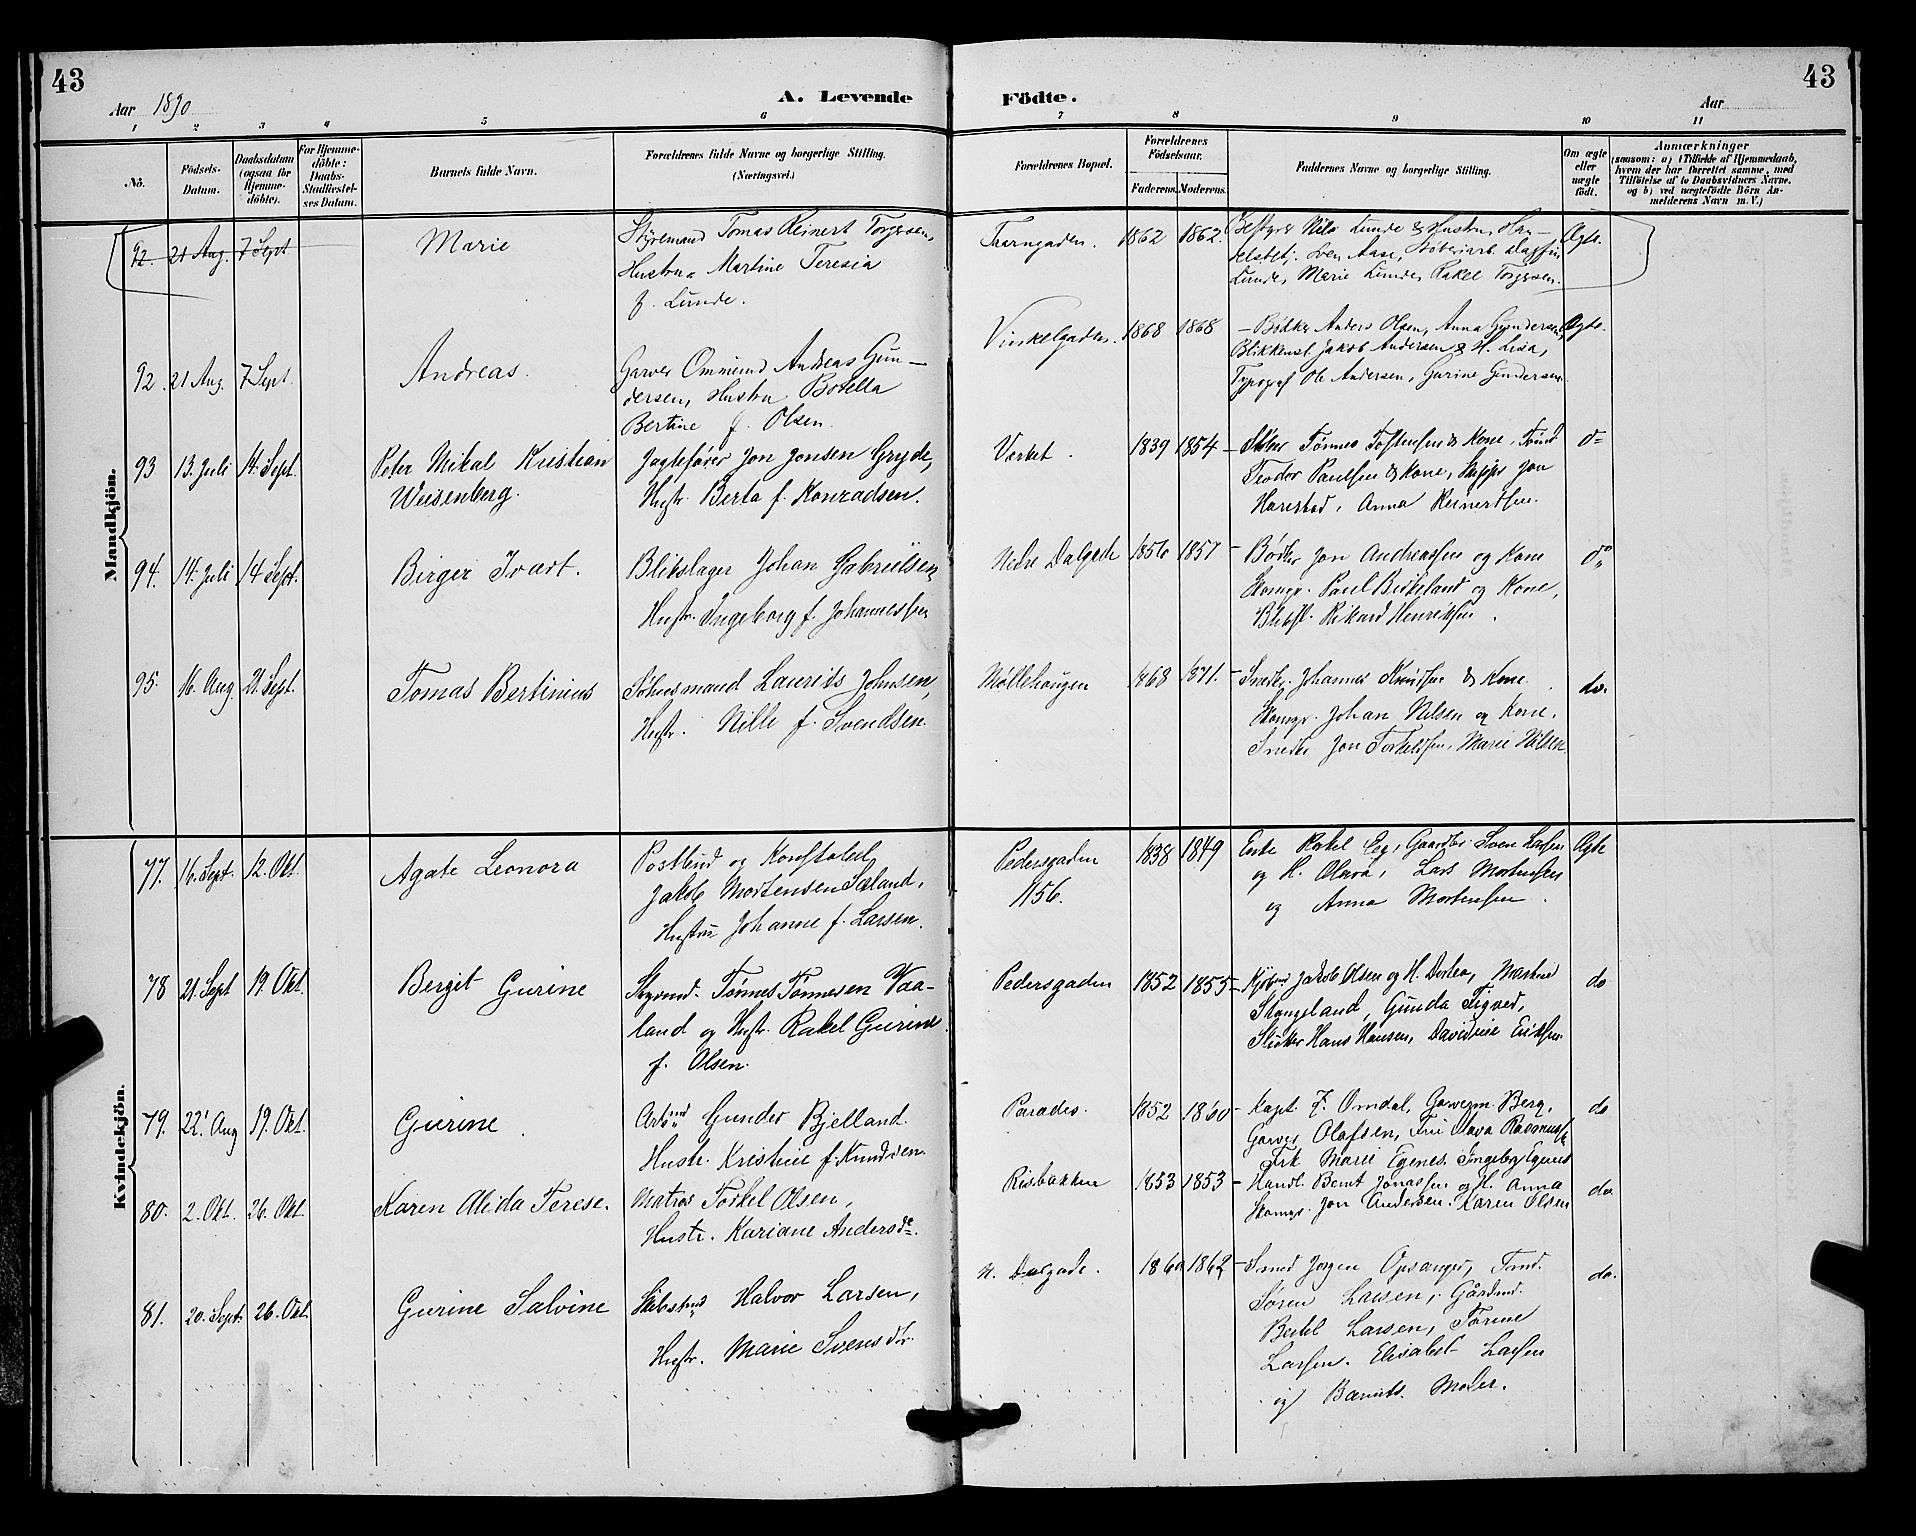 43
Aar 1890
A. Levende
Födte.
Aar
43
1 2 3 4 5 6 7 8 9 10 11
No.
Födsels-Datum.
Daabsdatum (ogsaa for Hjemme-döbte).
For Hjemme-döbte: Daabs-Stadfæstel-ses Datum.
Barnets fulde Navn.
Forældrenes fulde Navne og borgerlige Stilling. (Næringsvei.)
Forældrenes Bopæl.
Forældrenes Födselsaar.
Faderens. Moderens.
Faddernes Navne og borgerlige Stilling.
Om ægte eller uægte födt.
Anmærkninger
(saasom: a) i Tilfælde af Hjemmedaab, hvem der har forrettet samme, med Tilföielse af to Daabsvidners Navne, og b) ved uægtefödte Börn An-melderens Navn m. V.)
Mandkjön.
92. 21 Aug. 7 Sept
Marie
Styremand Tomas Reinert Torgersen,
Hustru Martine Teresia
f. Lunde.
Taarngaden. 1862 1862.
Bestyrer Nils Lunde & Hustru, Han-
delsbetj. Sven Aase, Støberiarb. Dagfin
Lunde, Marie Lunde, Rakel Torgersen.
Ægte.
92. 21 Aug. 7 Sept.
Andreas.
Garver Ommund Andreas Gun-
dersen, Hustru Botella
Bertine f. Olsen.
Vinkelgaden. 1868 1868
- Bødker Anders Olsen, Anna Gundersen,
Blikkensl. Jakob Andersen & H. Lisa,
Typograf Ole Andersen, Gurine Gundersen.
Ægte.
93 13. Juli 14. Sept.
Peter Mikal Kristian
Weisenberg.
Jagtefører Jon Jonsen Gryde,
Hustr. Berta f. Konradsen.
Verket. 1839 1854
- Tønnes Tostensen & Kone,
Teodor Paulsen & Kone, Skipper Jon
Harestad, Anna Reinertsen.
do
94. 14. Juli 14 Sept.
Birger Ivart.
Blikslager Johan Gabrielsen,
Hustr. Ingeborg f. Johannessen
Nedre Dalgade 1856 1857
- Bødker Jon Andreassen og Kone
Skomgr. Paul Birkeland og Kone,
Bliksl. Rikard Henriksen.
do
95. 16. Aug. 21. Sept.
Tomas Bertinius
Sølvesmand Laurits Johnsen,
Hustr. Nille f. Svendsen.
Møllehaugen 1868 1871.
- Snedk. Johannes Knudsen & Kone.
Skomgr. Johan Nilsen og Kone,
Snedk. Jon Torkelsen, Marie Nilsen
do.
Kvindekjön.
77. 16. Sept. 12. Okt.
Agate Leonora
Postbud og Konstabel
Jakob Mortensen Sæland,
Hustru Johanne f. Larsen.
Pedersgaden
156.
1838 1849
Enke Rakel Eeg, Gaardbr. Sven Larsen
og H. Olava, Lars Mortensen
og Anna Mortensen.
Ægte
78 21. Sept 19. Okt.
Bergit Gurine
Styrmd. Tønnes Tønnesen Vaa-
land og Hustr. Rakel Gurine
f. Olsen.
Pedersgaden 1852 1855
- Jakob Olsen og H. Dortea, Martine
Stangeland, Gunda Tigved,
Slagter Hans Hansen, Davidine Eriksen.
do
79. 22. Aug 19. Okt.
Gurine.
Arbmd. Gunder Bjelland.
Hustr. Kristine f. Knudsen.
Parades. 1852 1860
- Kapt. F. Omdal, Garverm. Berg,
Garver Olafsen, Fru Olava Rasmuss.
Frk Marie Egenes. Ingeborg Egenes
do
80. 2. Okt. 26. Okt.
Karen Alida Terese.
Matros Torkel Olsen,
Hustr. Kariane Andersdr.
Risbakken 1853 1853
- Handl. Bernt Jonassen og H. Anna
Skomgr. Jon Andersen. Karen Olsen
do
81. 20. Sept. 26. Okt.
Gurine Salvine
Halvor Larsen,
Hustr. Marie Svensdtr.
N. Dalgade. 1860 1862
- Smed Jørgen Opsanger,
Søren Larsen, Gårdmd.
Bertel Larsen, Tørine
Larsen. Elisabet Larsen
og Barnets Moder.
do.